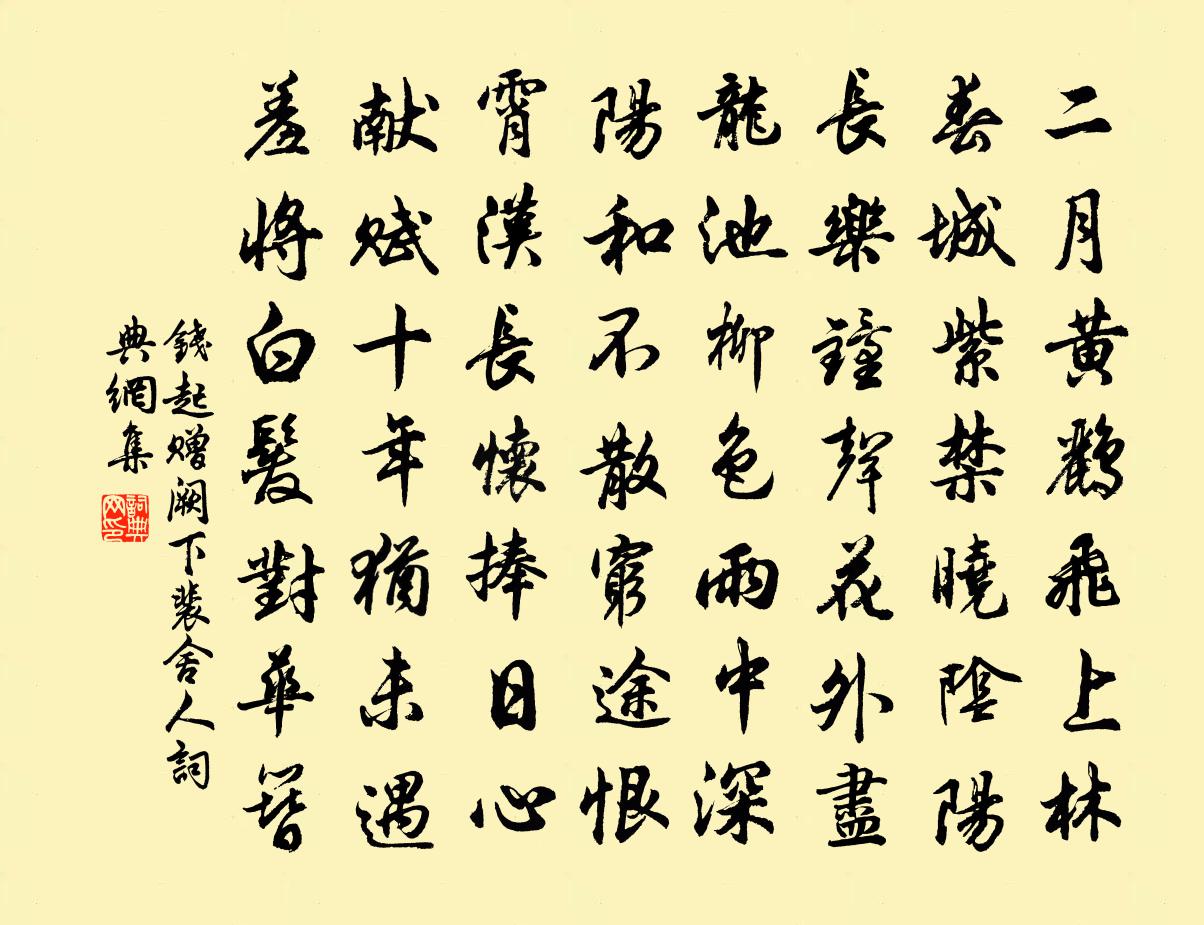 二月黄鸝飛上林
春城紫禁曉陰陽
長樂鐘聲花外盡
龍池柳色雨中深
陽和不散窮途恨
霄漢長懷捧日心
献賦十年猶未遇
羞將白髮對華簪
錢起赠阙下裴舍人詞
典網集
詞典
网印